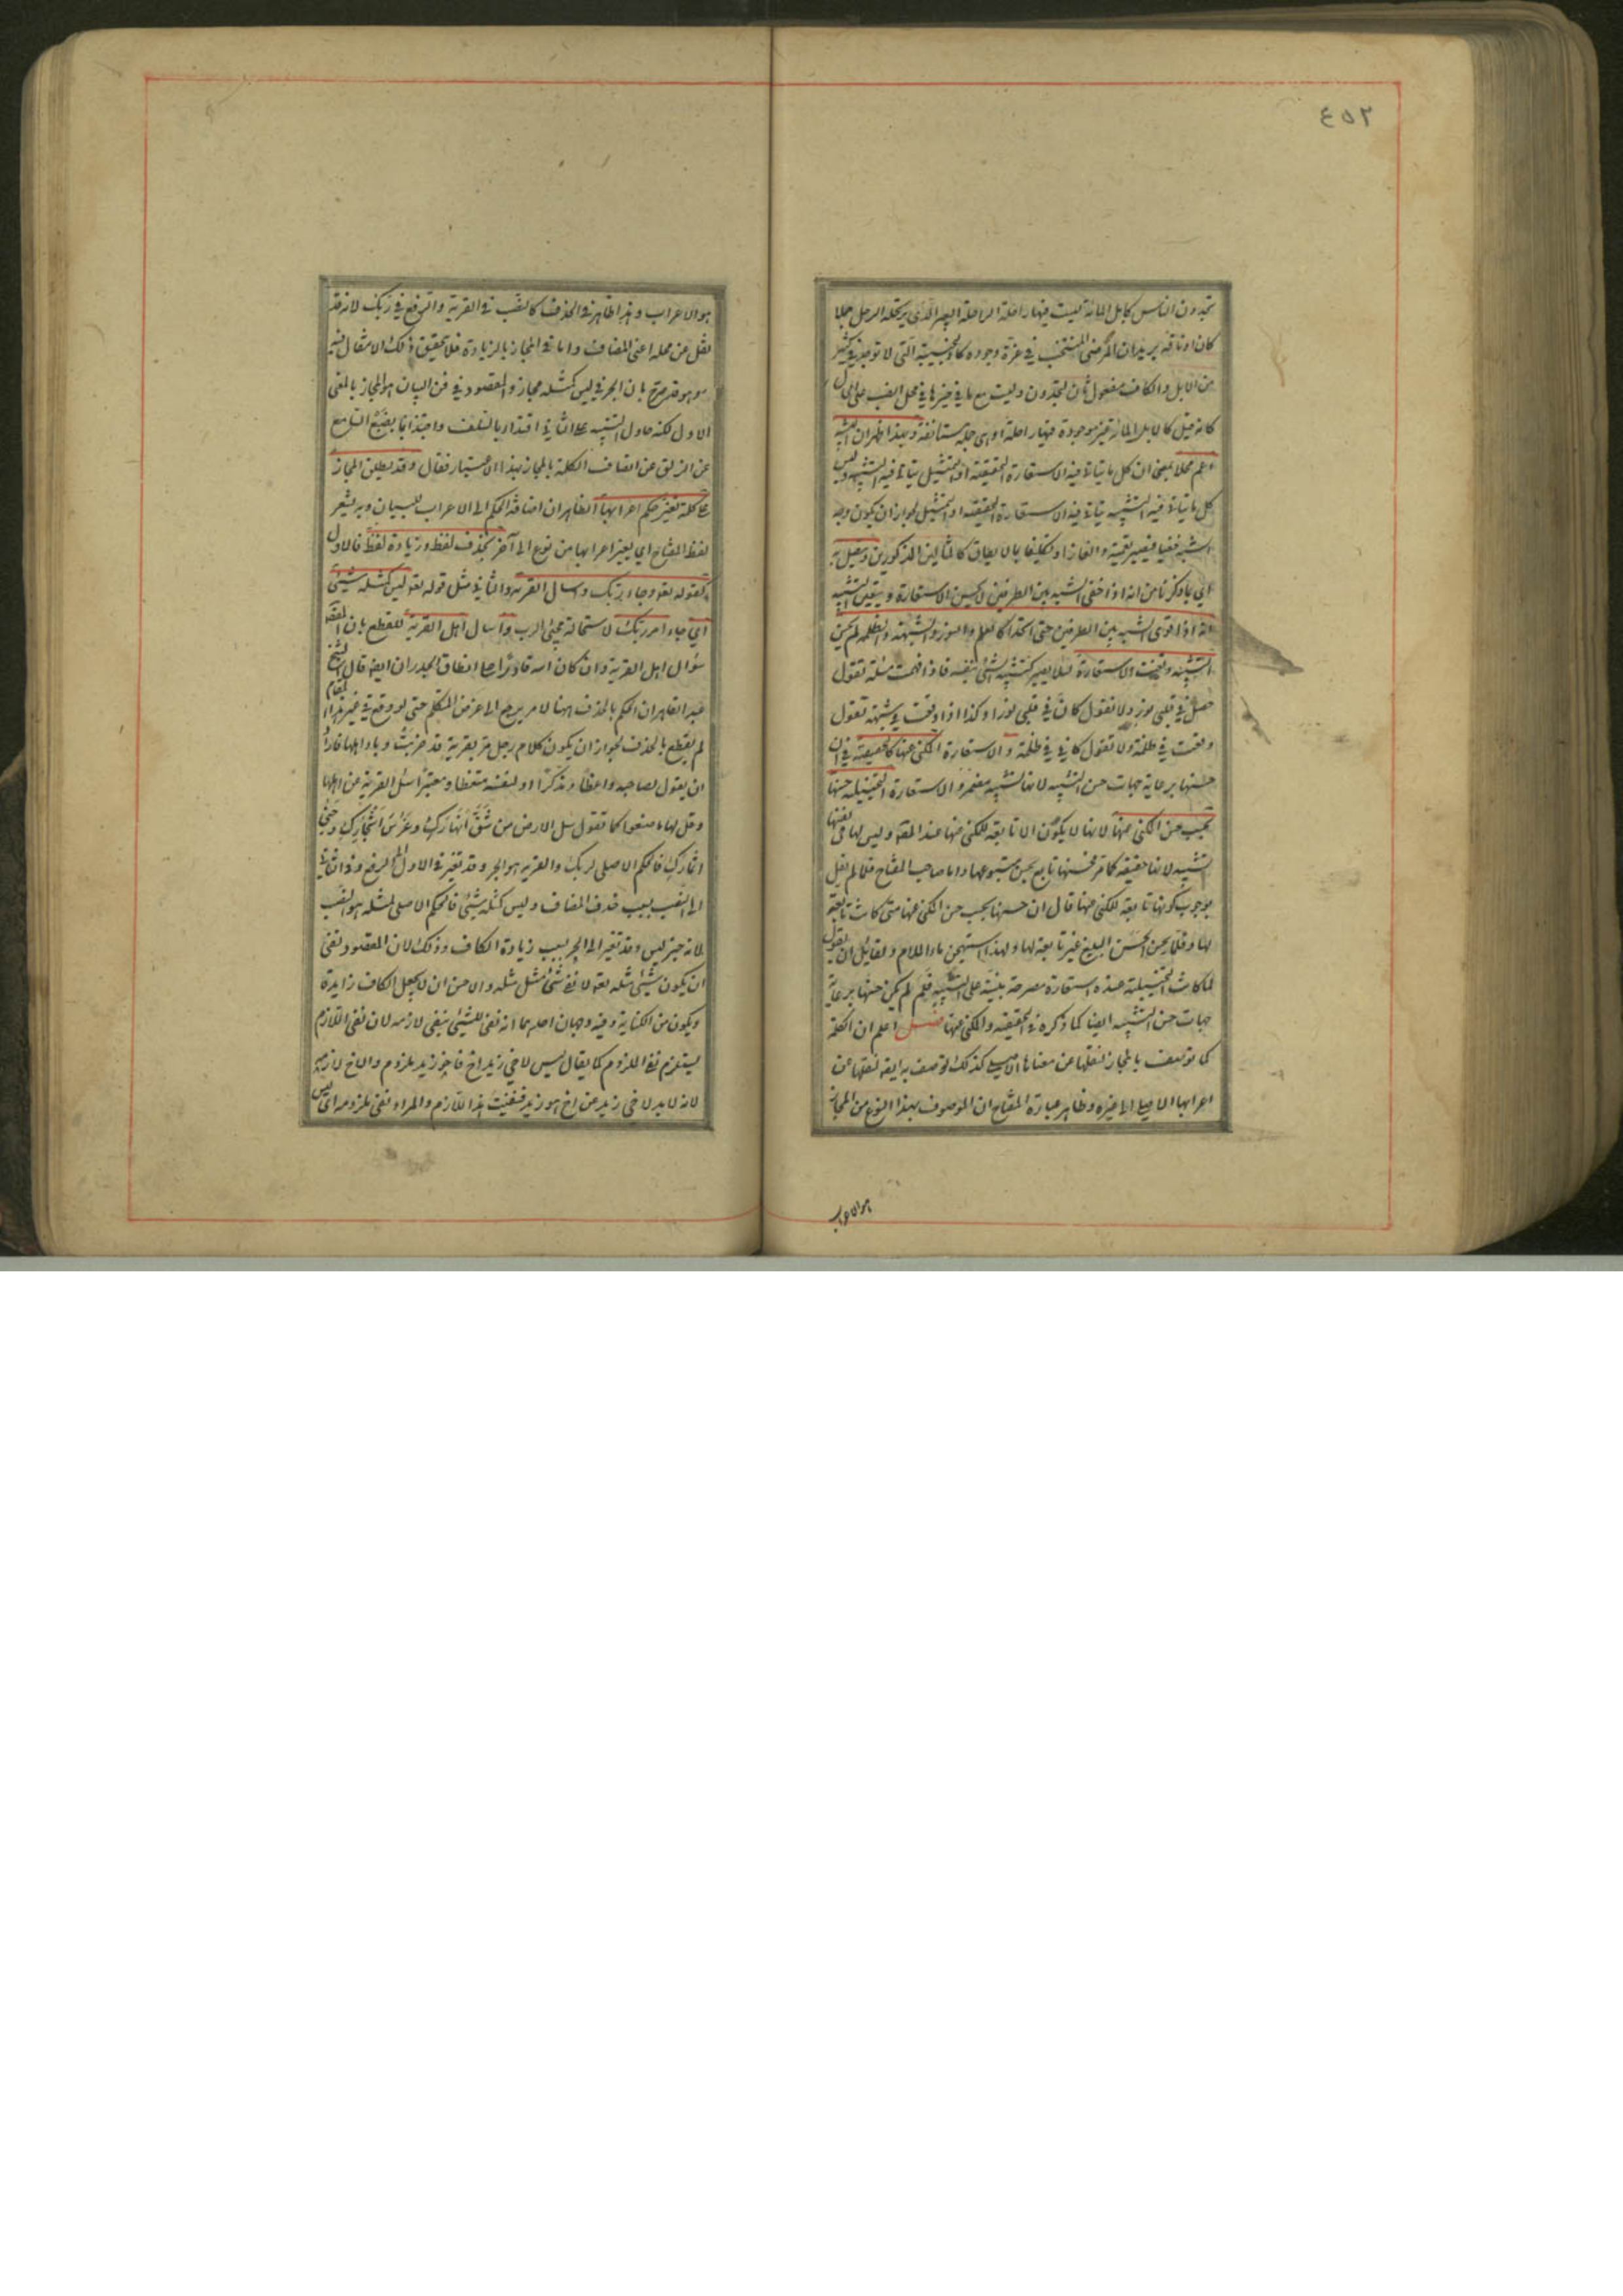 ٤٥٢
تجدون الناس كابل المائة ليست فيها راحلة الراحلة البعير الذي يرتحله الرجل جملا
كان او ناقة يريد ان المرضي المنتخب في عزة وجوده كالنجيبة التي لا توجد في كثير
من الابل والكاف مفعول ثان لتجدون وليست مع ما في حيزها في محل النصب على الحال
كانه قيل كالابل المائة غير موجودة فيها راحلة او هي جملة مستانفة وبهذا ظهر ان التشبيه
اعم محلا بمعنى ان كل ما يتاتى فيه الاستعارة الحقيقية او التمثيل يتاتى فيه التشبيه وليس
كل ما يتاتى فيه التشبيه يتاتى فيه الاستعارة الحقيقية او التمثيل لجواز ان يكون وجه
الشبه خفيا فيصير تعمية والغازا وتكليفا بما لا يطاق كالمثالين المذكورين ويتصل به
اي بما ذكرنا من انه اذا خفي الشبه بين الطرفين لا يحسن الاستعارة ويتعين التشبيه
انه اذا قوي الشبه بين الطرفين حتى اتحدا كالعلم والنور والشبهة والظلمة لم يحسن
التشبيه وتعينت الاستعارة لئلا يصير كتشبيه الشئ بنفسه فاذا فهمت مسئلة تقول
حصل في قلبي نور ولا تقول كان في قلبي نورا وكذا اذا وقعت في شبهة تقول
وقعت في ظلمة ولا تقول كاني في ظلمة والاستعارة المكني عنها كالحقيقية في ان
حسنها برعاية جهات حسن التشبيه لانها تشبيه مضمر والاستعارة التخييلية حسنها
بحسب حسن المكني عنها لانها لا يكون الا تابعة للمكني عنها عند المص وليس لها في نفسها
تشبيه لانها حقيقة كما مر فحسنها تابع لحسن متبوعها واما صاحب المفتاح فلما لم يقل
بوجوب كونها تابعة للمكني عنها قال ان حسنها بحسب حسن المكني عنها متى كانت تابعة
لها وقلما يحسن الحسن البليغ غير تابعة لها ولهذا استهجن ماء الملام ولقائل ان يقول
لما كانت التخييلية عنده استعارة مصرحة مبنية على التشبيه فلم لم يكن حسنها برعاية
جهات حسن التشبيه ايضا كما ذكره في الحقيقية والمكني عنها فصل اعلم ان الكلمة
كما توصف بالمجاز لنقلها عن معناها الاصلي كذلك توصف به ايضا لنقلها عن
اعرابها الاصلي الى غيره وظاهر عبارة المفتاح ان الموصوف بهذا النوع من المجاز
هو الاعراب
هو الاعراب وهذا ظاهر في الحذف كالنصب في القرية والرفع في ربك لانه قد
نقل عن محله اعني المضاف واما في المجاز بالزيادة فلا يتحقق ذلك الانتقال فيه
وهو قد صرح بان الجر في ليس كمثله مجاز والمقصود في فن البيان هو المجاز بالمعنى
الاول لكنه حاول التنبيه على الثاني اقتداء بالسلف واجتذابا بضبع السامع
عن الزلق عن اتصاف الكلمة بالمجاز بهذا الاعتبار فقال وقد يطلق المجاز
على كلمة تغير حكم اعرابها الظاهر ان اضافة الحكم الى الاعراب للبيان وبه يشعر
لفظ المفتاح اي يغير اعرابها من نوع الى آخر بحذف لفظ وزيادة لفظ فالاول
كقوله تعو وجاء ربك واسال القرية والثاني مثل قوله تعو ليس كمثله شيئ
اي جاء امر ربك لاستحالة مجيئ الرب واسال اهل القرية للقطع بان المقصود
سؤال اهل القرية وان كان الله قادرا على انطاق الجدران ايضا قال الشيخ
عبد القاهر ان الحكم بالحذف ههنا لامر يرجع الى غرض المتكلم حتى لو وقع في غير هذا المقام
لم يقطع بالحذف لجواز ان يكون كلام رجل مر بقرية قد خربت وباد اهلها فاراد
ان يقول لصاحبه واعظا ومذكرا او لنفسه متعظا ومعتبرا اسئل القرية عن اهلها
وقل لها ما صنعوا كما تقول سل الارض من شق انهارك وغرس اشجارك وجنى
اثمارك فالحكم الاصلي لربك والقرية هو الجر وقد تغير في الاول الى الرفع وفي الثاني
الى النصب بسبب حذف المضاف وليس كمثله شيئ فالحكم الاصلي لمثله هو النصب
لانه خبر ليس وقد تغير الى الجر بسبب زيادة الكاف وذلك لان المقصود نفي
ان يكون شيئ مثله تعو لا نفي شئ مثل مثله والاحسن ان لا يجعل الكاف زايدة
ويكون من الكناية وفيه وجهان احدهما انه نفي للشيئ بنفي لازمه لان نفي اللازم
يستلزم نفي الملزوم كما يقال ليس لاخي زيد اخ فاخو زيد ملزوم والاخ لازمه
لانه لابد لاخي زيد من اخ هو زيد فنفيت هذا اللازم والمراد نفي ملزومه اي ليس